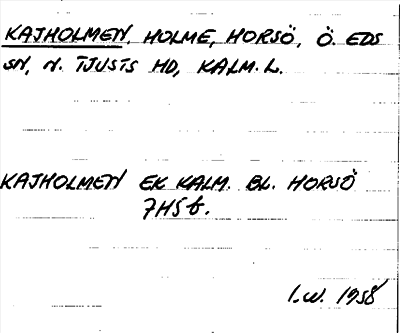 KAJHOLMEN, HOLME, HORSÖ, Ö. EDS
SN, N. TJUSTS HD, KALM. L.
KAJHOLMEN EK KALM. BL. HORSÖ
7H5b.
I.W. 1958